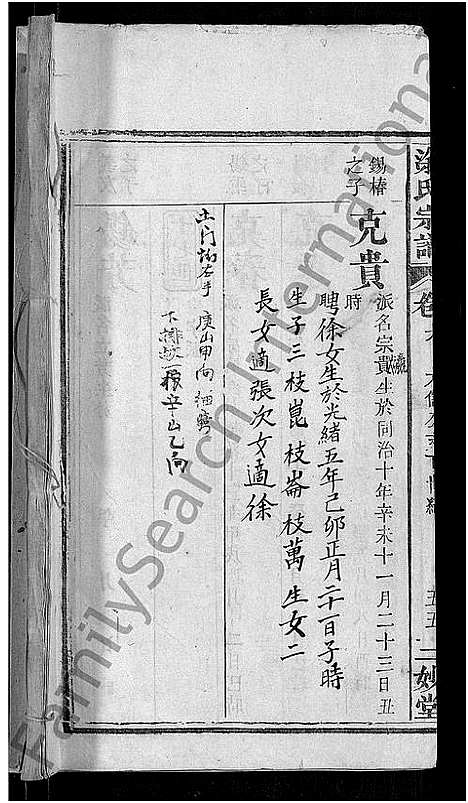 涂氏宗譜
卷
五五
二妙堂
錫椿
之子
克貴
派名宗貴生於同治十年辛未十一月二十三日丑
時
聘徐女生於光緒五年己卯正月二十日子時
生子三枝崑 枝崙 枝萬 生女二
長女適張次女適徐
土门坳右手 庚山甲向
下排 辛山乙向
FamilySearch International